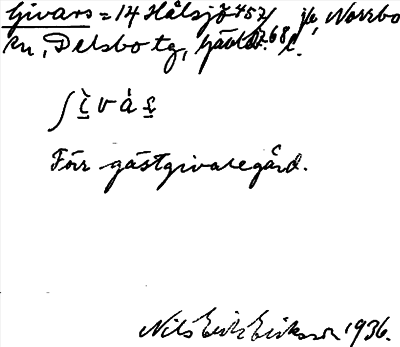 Givars = 14 Hålsjö 457/ jb, Norrbo
sn, Delsbo tg, Gävleb. 1768 l.
ʃi̲vàs̲
Förr gästgivaregård.
Nils Erik Eriksson 1936.